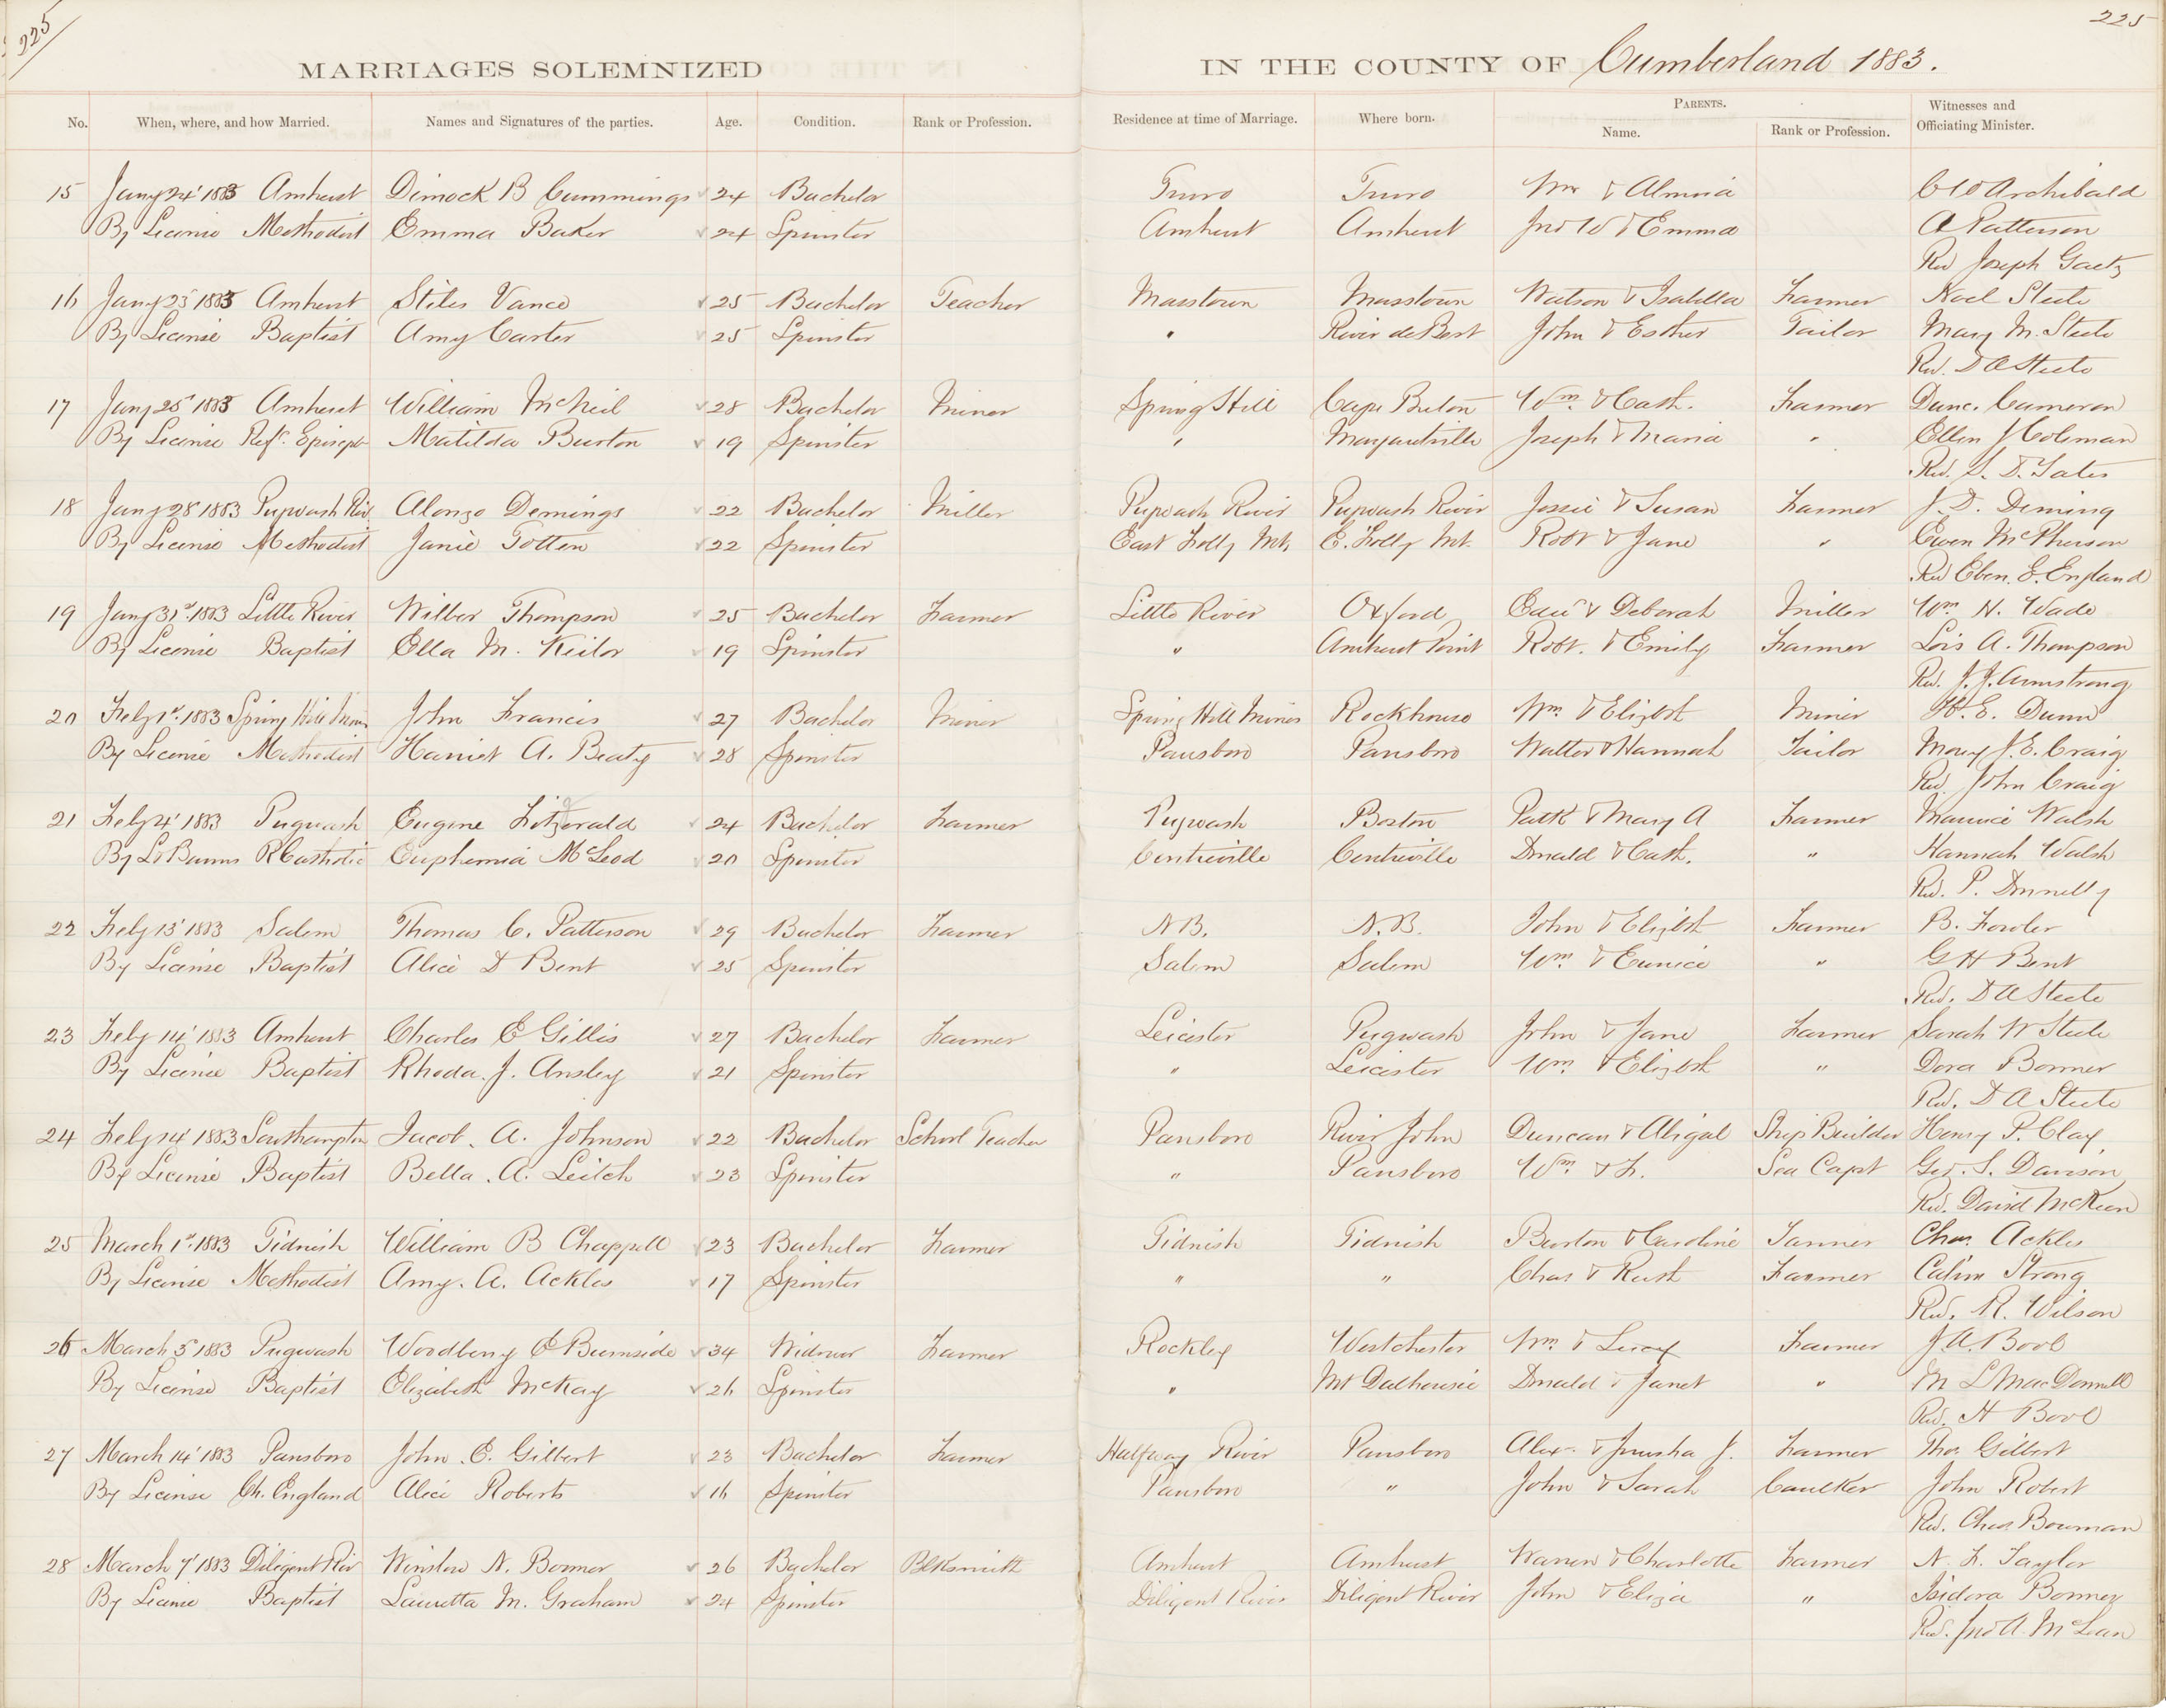 225
225
MARRIAGES SOLEMNIZED IN THE COUNTY OF Cumberland 1883.
No. When, where, and how Married. Names and Signatures of the parties. Age. Condition. Rank or Profession. Residence at time of Marriage. Where born. PARENTS. Name. Rank or Profession. Witnesses and Officiating Minister.
15 Jany 24' 1883 Amherst Dimock B Cummings 24 Bachelor Truro Truro Wm & Almira C W Archibald
By License Methodist Emma Baker 24 Spinster Amherst Amherst Jno W & Emma A Patterson
Rev Joseph Gaetz
16 Jany 25 1883 Amherst Stiles Vance 25 Bachelor Teacher Masstown Masstown Watson & Isabella Farmer Noel Steele
By License Baptist Amy Carter 25 Spinster " River de Bert John & Esther Tailor Mary M. Steele
Rev. D A Steele
17 Jany 25' 1883 Amherst William McNeil 28 Bachelor Miner Spring Hill Cape Breton Wm. & Cath. Farmer Dunc. Cameron
By License Ref. Episcop Matilda Burton 19 Spinster " Margaretville Joseph & Maria " Ellen J Coleman
Rev. S. D. Yates
18 Jany 28' 1883 Pugwash Riv Alonzo Demings 22 Bachelor Miller Pugwash River Pugwash River Jessie & Susan Farmer J. D. Deming
By License Methodist Janie Totten 22 Spinster East Folly Mt. E. Folly Mt. Robt & Jane " Ewen McPherson
Rev Eben. E. England
19 Jany 31st 1883 Little River Wilber Thompson 25 Bachelor Farmer Little River Oxford Edwd & Deborah Miller Wm. H. Wade
By License Baptist Ella M. Keilor 19 Spinster " Amherst Point Robt. & Emily Farmer Lois A. Thompson
Rev. J. J. Armstrong
20 Feby 1st. 1883 Spring Hill Mines John Francis 27 Bachelor Miner Spring Hill Mines Rockhouse Wm. & Elizbth Miner H. E. Dunn
By License Methodist Harriet A. Beaty 28 Spinster Parrsboro Parrsboro Walter & Hannah Tailor Mary J. E. Craig
Rev. John Craig
21 Feby 4' 1883 Pugwash Eugene Fitzgerald 24 Bachelor Farmer Pugwash Boston Patk & Mary A Farmer Maurice Walsh
By Banns R Catholic Euphemia McLeod 20 Spinster Centreville Centreville Donald & Cath. " Hannah Walsh
Rev. P. Donnelly
22 Feby 13' 1883 Salem Thomas C. Patterson 29 Bachelor Farmer N B. N. B. John & Elizbth Farmer B. Fowler
By License Baptist Alice D Bent 25 Spinster Salem Salem Wm. & Eunice " G H Bent
Rev. D A Steele
23 Feby 14' 1883 Amherst Charles E Gillis 27 Bachelor Farmer Leicester Pugwash John & Jane Farmer Sarah W Steele
By License Baptist Rhoda. J. Ansley 21 Spinster " Leicester Wm. & Elizbth " Dora Bonner
Rev. D A Steele
24 Feby 14' 1883 Southampton Jacob. A. Johnson 22 Bachelor School Teacher Parrsboro River John Duncan & Abigal Ship Builder Henry P. Clay
By License Baptist Bella. A. Leitch 23 Spinster " Parrsboro Wm. & F. Sea Capt Geo. S. Davison
Rev. David McKeen
25 March 1st. 1883 Tidnish William B Chappell 23 Bachelor Farmer Tidnish Tidnish Burton & Caroline Tanner Chas. Ackles
By License Methodist Amy. A. Ackles 17 Spinster " " Chas & Ruth Farmer Calvin Strong
Rev. R. Wilson
26 March 5' 1883 Pugwash Woodberry E Burnside 34 Widower Farmer Rockley Westchester Wm. & Lucy Farmer J. A. Bool
By License Baptist Elizabeth McKay 26 Spinster " Mt Dalhousie Donald & Janet " M L MacDonnell
Rev. H Bool
27 March 14' 1883 Parrsboro John. E. Gilbert 23 Bachelor Farmer Halfway River Parrsboro Alex. & Jerusha J. Farmer Tho. Gilbert
By License Ch. England Alice Roberts 16 Spinster Parrsboro " John & Sarah Caulker John Robert
Rev. Chas Bowman
28 March 7' 1883 Diligent Riv Winslow N. Bonner 26 Bachelor Blksmith Amherst Amherst Warren & Charlotte Farmer N. F. Taylor
By License Baptist Lauretta M. Graham 24 Spinster Diligent River Diligent River John & Eliza " Isidora Bonner
Rev. Jno A. McLean